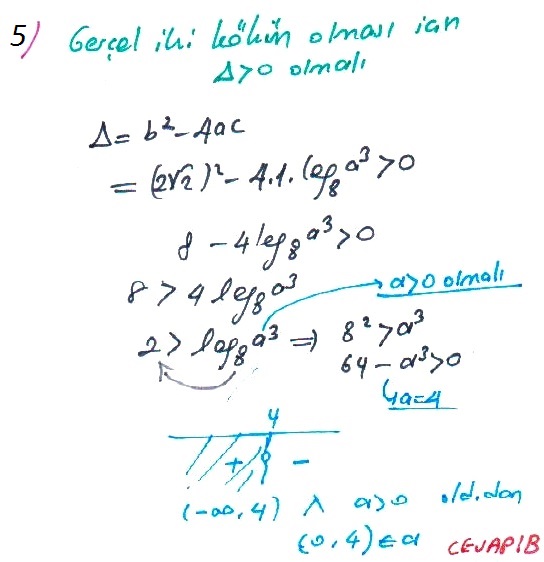 5) Gerçel iki kökün olması için
Δ>0 olmalı
Δ= b²-4ac
= (2√2)²-4.1.log₈a³>0
8-4log₈a³>0
8>4log₈a³
a>0 olmalı
2>log₈a³ ⇒ 8²>a³
64-a³>0
↳a=4
4
+ -
(-∞,4) ∧ a>0 old.dan
(0,4)∈a CEVAP:B